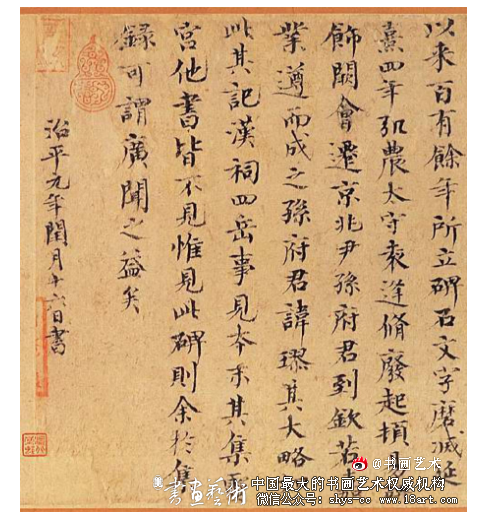 以來百有餘年所立碑石文字磨滅延
熹四年弘農太守袁逢脩廢起頓易
飾闕會遷京兆尹孫府君到欽若嘉
業遵而成之孫府君諱璆其大略
此其記漢祠四岳事見本末其集
宮他書皆不見惟見此碑則余於集
録可謂廣聞之益矣
治平元年閏月十六日書
@书画艺术
書畫藝術
中国最大的书画艺术权威机构
微信公众号: shys-cc www.18art.com